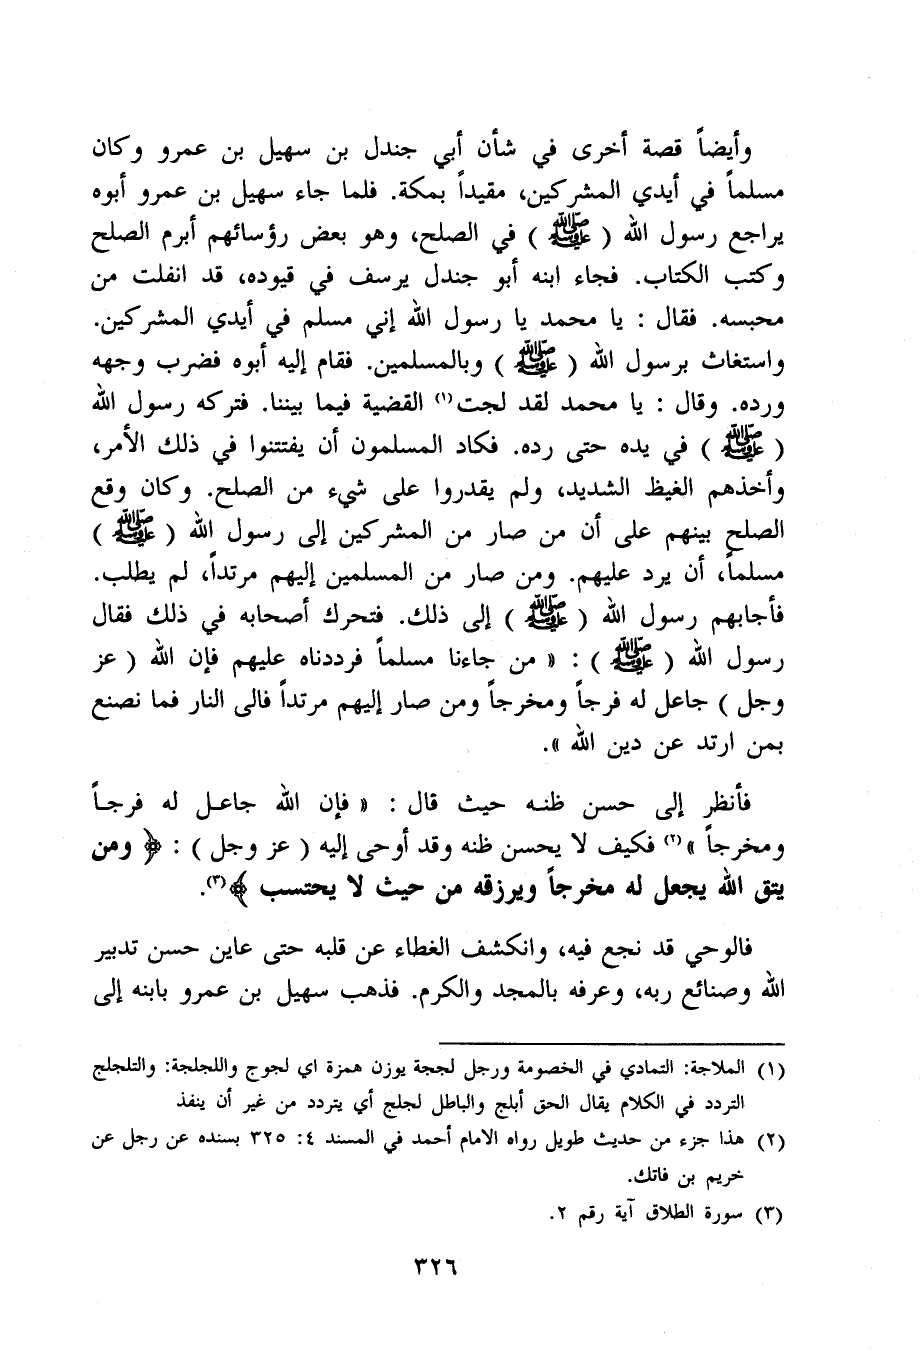 وأيضاً قصة أخرى في شأن أبي جندل بن سهيل بن عمرو وكان
مسلماً في أيدي المشركين، مقيداً بمكة. فلما جاء سهيل بن عمرو أبوه
يراجع رسول الله ( ﷺ ) في الصلح، وهو بعض رؤسائهم أبرم الصلح
وكتب الكتاب. فجاء ابنه أبو جندل يرسف في قيوده، قد انفلت من
محبسه. فقال : يا محمد يا رسول الله إني مسلم في أيدي المشركين.
واستغاث برسول الله ( ﷺ ) وبالمسلمين. فقام إليه أبوه فضرب وجهه
ورده. وقال : يا محمد لقد لجت(١) القضية فيما بيننا. فتركه رسول الله
( ﷺ ) في يده حتى رده. فكاد المسلمون أن يفتتنوا في ذلك الأمر،
وأخذهم الغيظ الشديد، ولم يقدروا على شيء من الصلح. وكان وقع
الصلح بينهم على أن من صار من المشركين إلى رسول الله ( ﷺ )
مسلماً، أن يرد عليهم. ومن صار من المسلمين إليهم مرتداً، لم يطلب.
فأجابهم رسول الله ( ﷺ ) إلى ذلك. فتحرك أصحابه في ذلك فقال
رسول الله ( ﷺ ) : « من جاءنا مسلماً فرددناه عليهم فإن الله ( عز
وجل ) جاعل له فرجاً ومخرجاً ومن صار إليهم مرتداً فالى النار فما نصنع
بمن ارتد عن دين الله ».
فأنظر إلى حسن ظنه حيث قال : « فإن الله جاعل له فرجاً
ومخرجاً »(٢) فكيف لا يحسن ظنه وقد أوحى إليه ( عز وجل ) : ﴿ ومن
يتق الله يجعل له مخرجاً ويرزقه من حيث لا يحتسب ﴾(٣).
فالوحي قد نجع فيه، وانكشف الغطاء عن قلبه حتى عاين حسن تدبير
الله وصنائع ربه، وعرفه بالمجد والكرم. فذهب سهيل بن عمرو بابنه إلى
(١) الملاجة: التمادي في الخصومة ورجل لججة يوزن همزة اي لجوج واللجلجة: والتلجلج
التردد في الكلام يقال الحق أبلج والباطل لجلج أي يتردد من غير أن ينفذ
(٢) هذا جزء من حديث طويل رواه الامام أحمد في المسند ٤: ٣٢٥ بسنده عن رجل عن
خريم بن فاتك.
(٣) سورة الطلاق آية رقم ٢.
٣٢٦